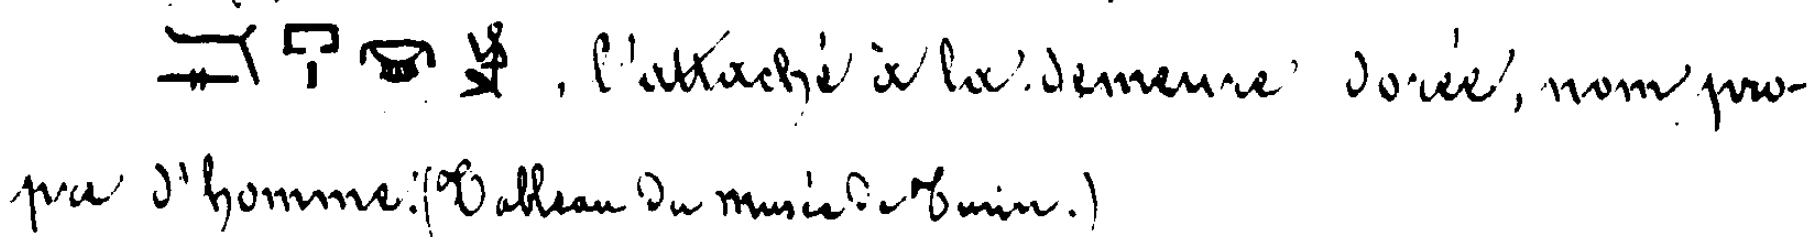 , l'attaché à la demeure dorée, nom pro-
pre d'homme. (Tableau du musée de Turin.)